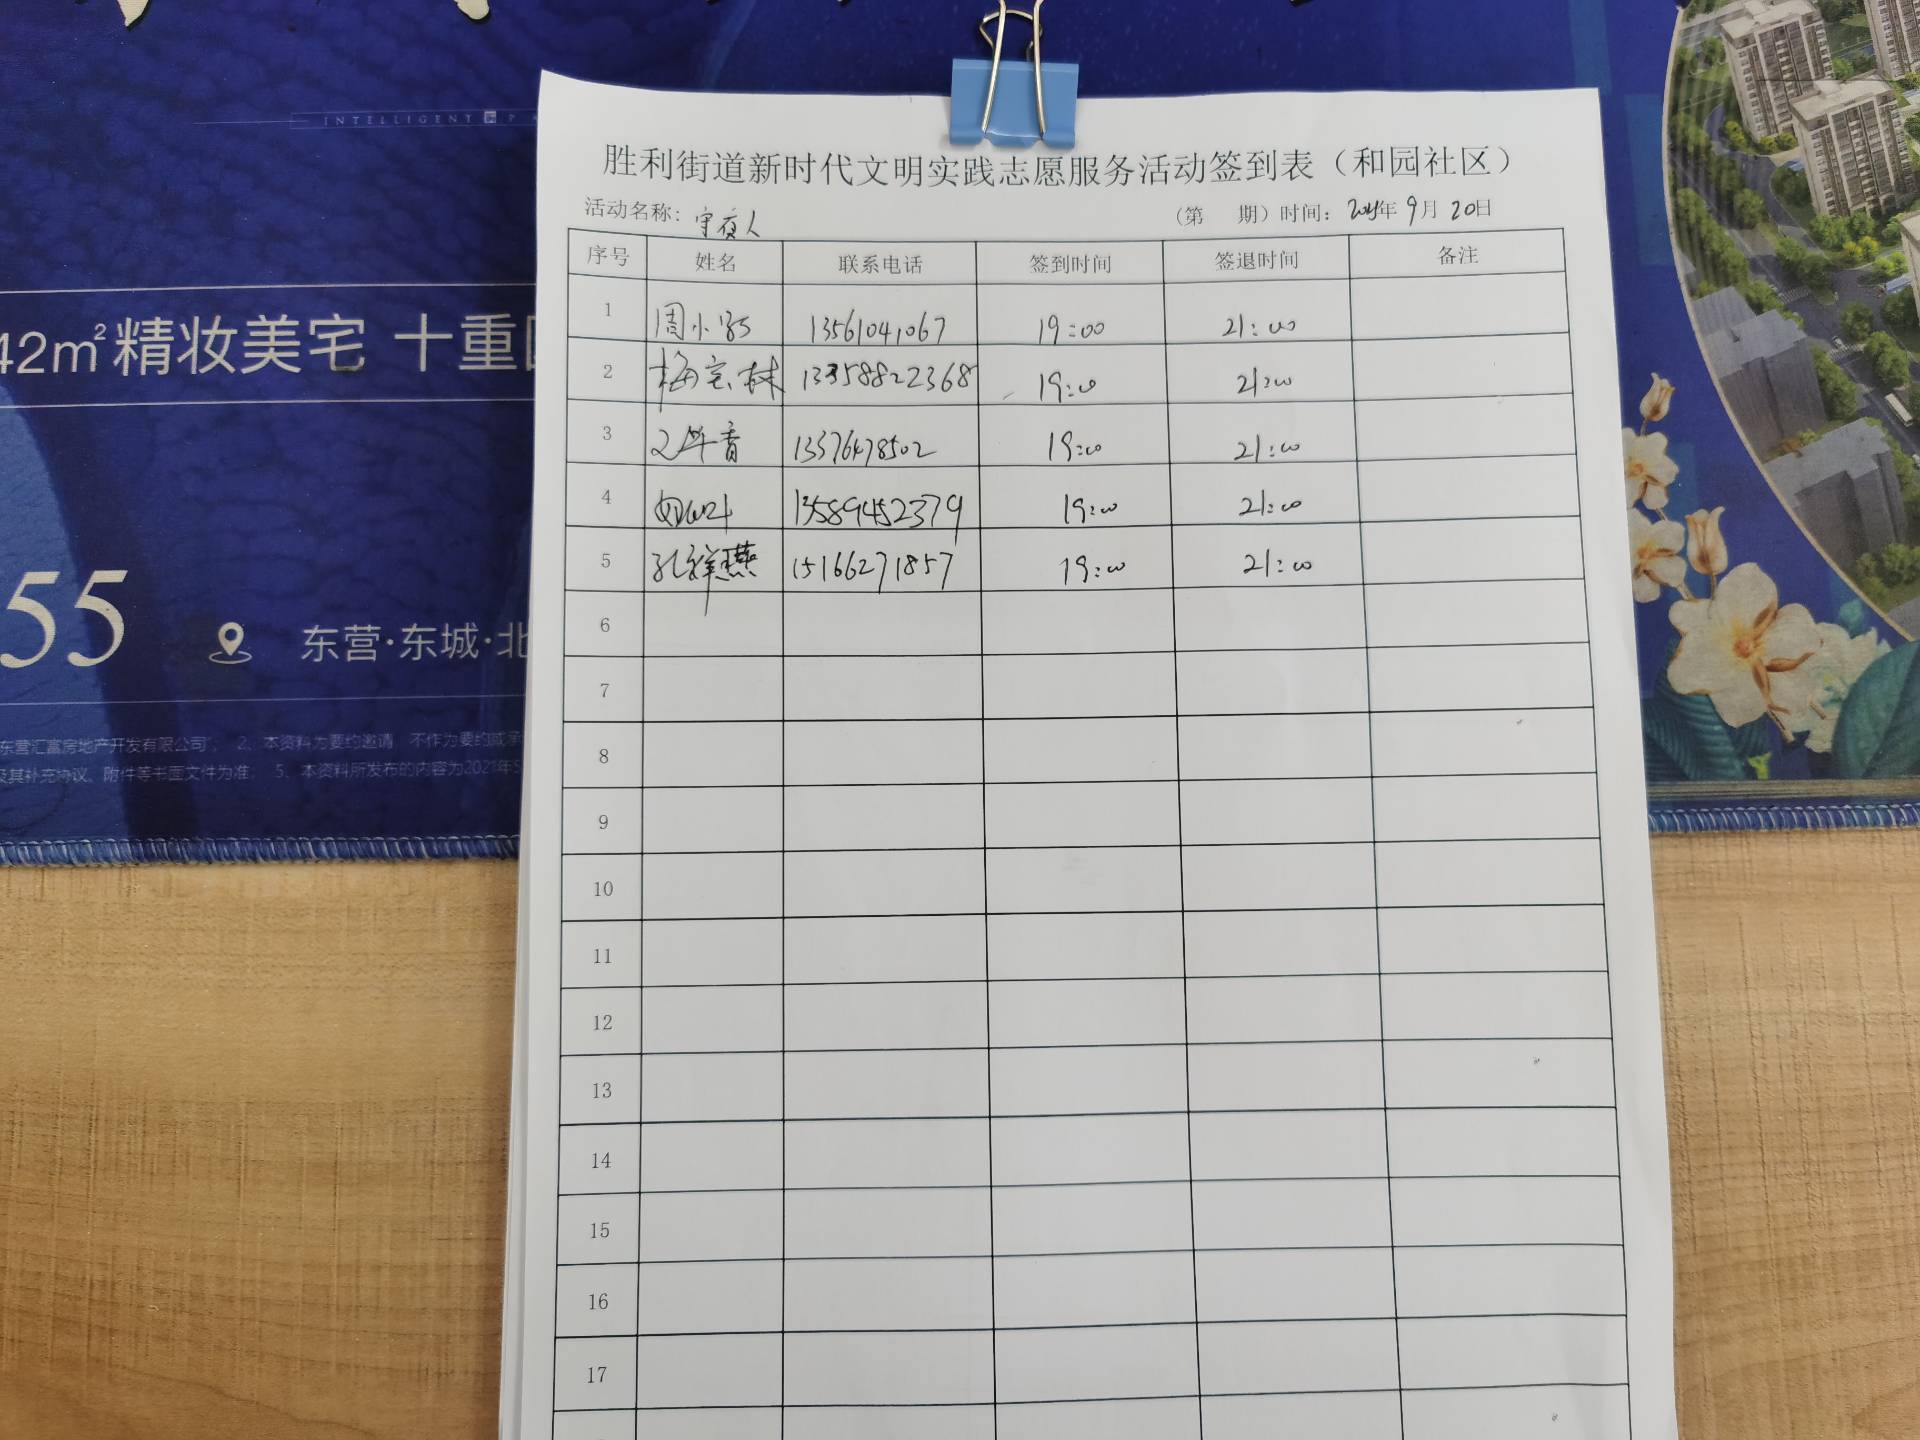 INTELLIGENT
42m²精妆美宅 十重
55
东营·东城·北
东营汇富房地产开发有限公司; 2、本资料为要约邀请 不作为要约或承
及其补充协议、附件等书面文件为准; 5、本资料所发布的内容为2021年5
胜利街道新时代文明实践志愿服务活动签到表（和园社区）
活动名称: 守夜人 （第 期）时间: 年9月20日
序号 姓名 联系电话 签到时间 签退时间 备注
1 周小 13561041067 19:00 21:00
2 梅宝林 19:00 21:00
3 19:00 21:00
4 13589452379 19:00 21:00
5 孔祥燕 15166271857 19:00 21:00
6
7
8
9
10
11
12
13
14
15
16
17